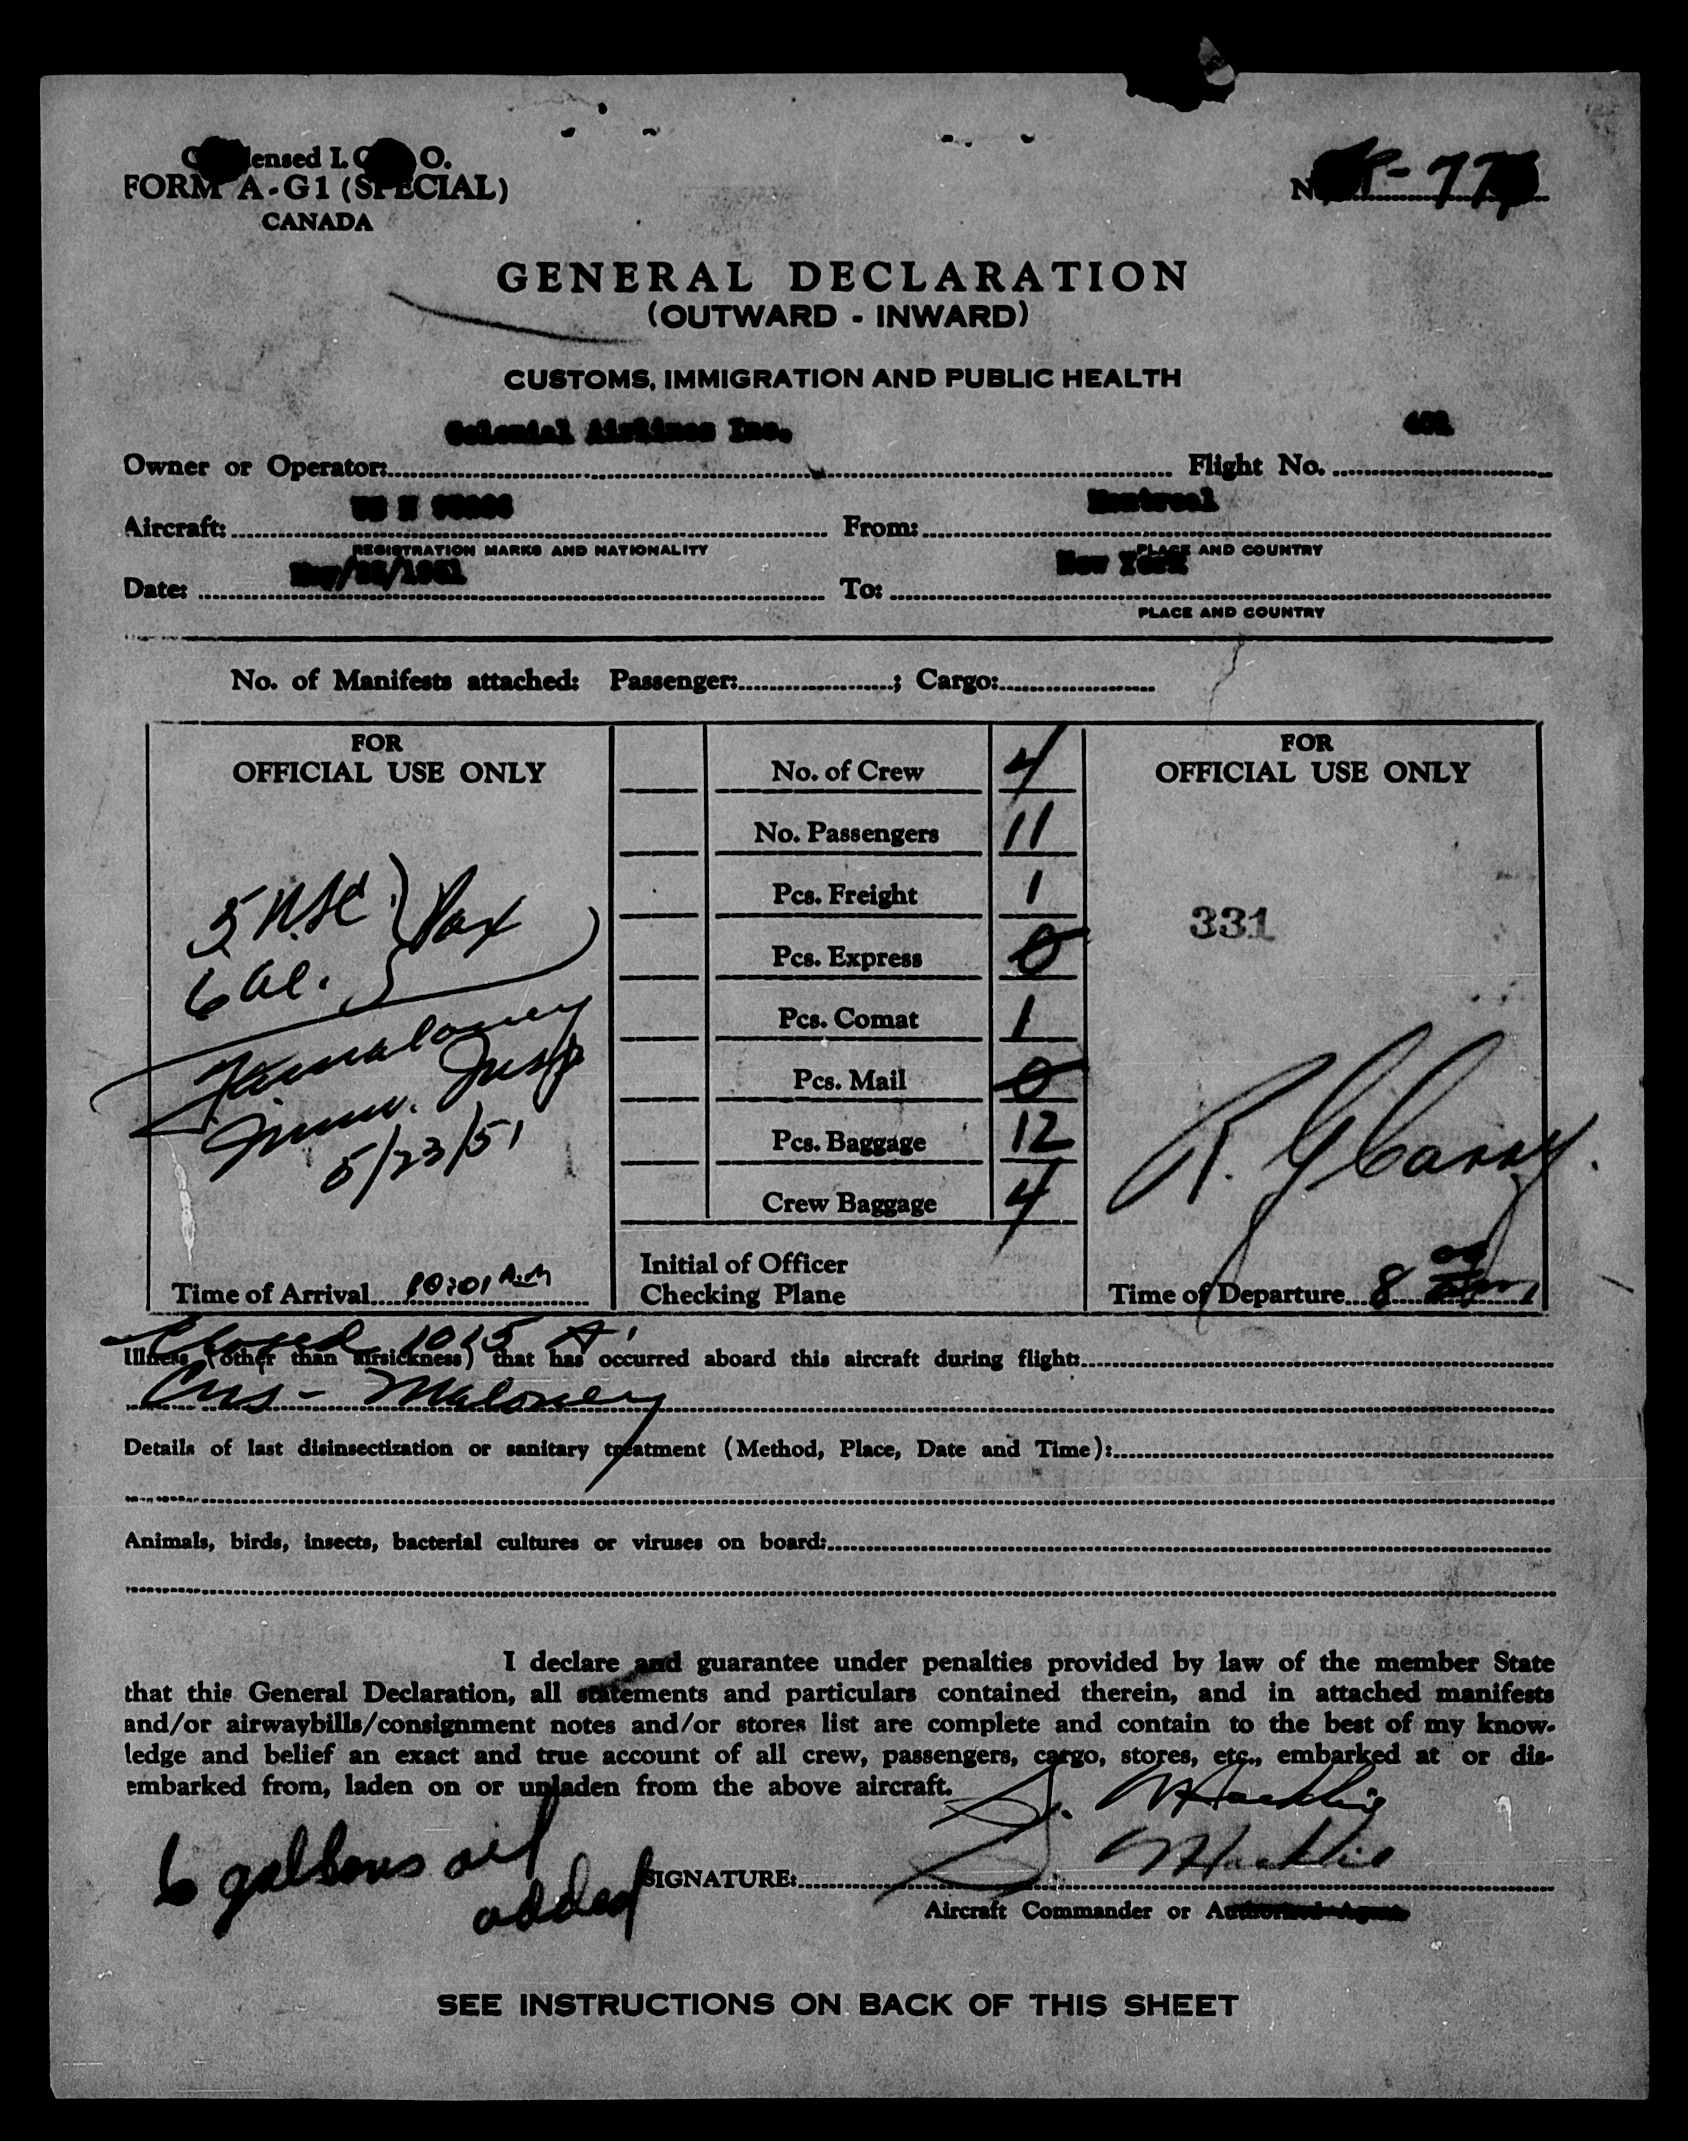 FORM A-G1 (SPECIAL)
CANADA
GENERAL DECLARATION
(OUTWARD - INWARD)
CUSTOMS, IMMIGRATION AND PUBLIC HEALTH
Colonial Airlines Inc.
Owner or Operator: Flight No.
Montreal
Aircraft: From:
REGISTRATION MARKS AND NATIONALITY PLACE AND COUNTRY
New York
Date: To:
PLACE AND COUNTRY
No. of Manifests attached: Passenger: ; Cargo:
FOR
OFFICIAL USE ONLY
5
6 Pax
Maloney
Immv. Insp
5/23/51
Time of Arrival 10:01 A.M
No. of Crew 4
No. Passengers 11
Pcs. Freight 1
Pcs. Express 0
Pcs. Comat 1
Pcs. Mail 0
Pcs. Baggage 12
Crew Baggage 4
Initial of Officer
Checking Plane
FOR
OFFICIAL USE ONLY
331
Time of Departure 8
Closed 1015 A
Illness (other than airsickness) that has occurred aboard this aircraft during flight:
Cus - Maloney
Details of last disinsectization or sanitary treatment (Method, Place, Date and Time):
Animals, birds, insects, bacterial cultures or viruses on board:
I declare and guarantee under penalties provided by law of the member State
that this General Declaration, all statements and particulars contained therein, and in attached manifests
and/or airwaybills/consignment notes and/or stores list are complete and contain to the best of my know-
ledge and belief an exact and true account of all crew, passengers, cargo, stores, etc., embarked at or dis-
embarked from, laden on or unladen from the above aircraft.
6 gallons oil
added
SIGNATURE:
Aircraft Commander or Authorized Agent
SEE INSTRUCTIONS ON BACK OF THIS SHEET